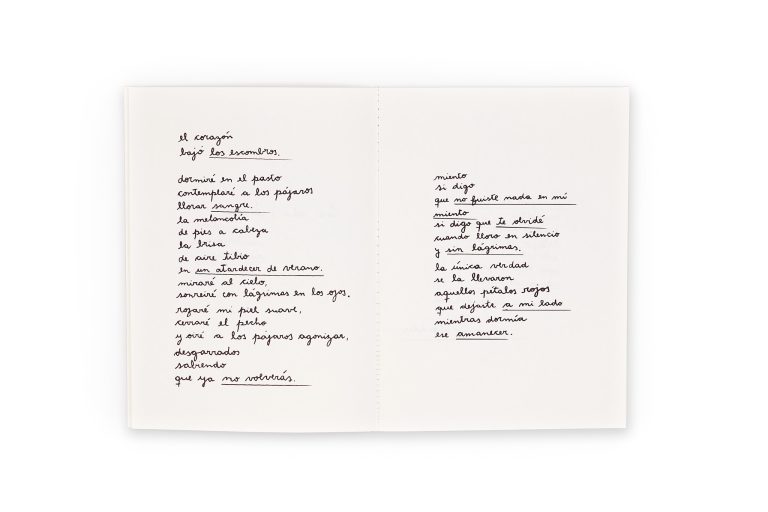 el corazón
bajo los escombros.
dormiré en el pasto
contemplaré a los pájaros
llorar sangre.
la melancolía
de pies a cabeza
la brisa
de aire tibio
en un atardecer de verano.
miraré al cielo,
sonreiré con lágrimas en los ojos.
rozaré mi piel suave,
cerraré el pecho
y oiré a los pájaros agonizar,
desgarrados
sabiendo
que ya no volverás.
miento
si digo
que no fuiste nada en mí
miento
si digo que te olvidé
cuando lloro en silencio
y sin lágrimas.
la única verdad
se la llevaron
aquellos pétalos rojos
que dejaste a mi lado
mientras dormía
ese amanecer.